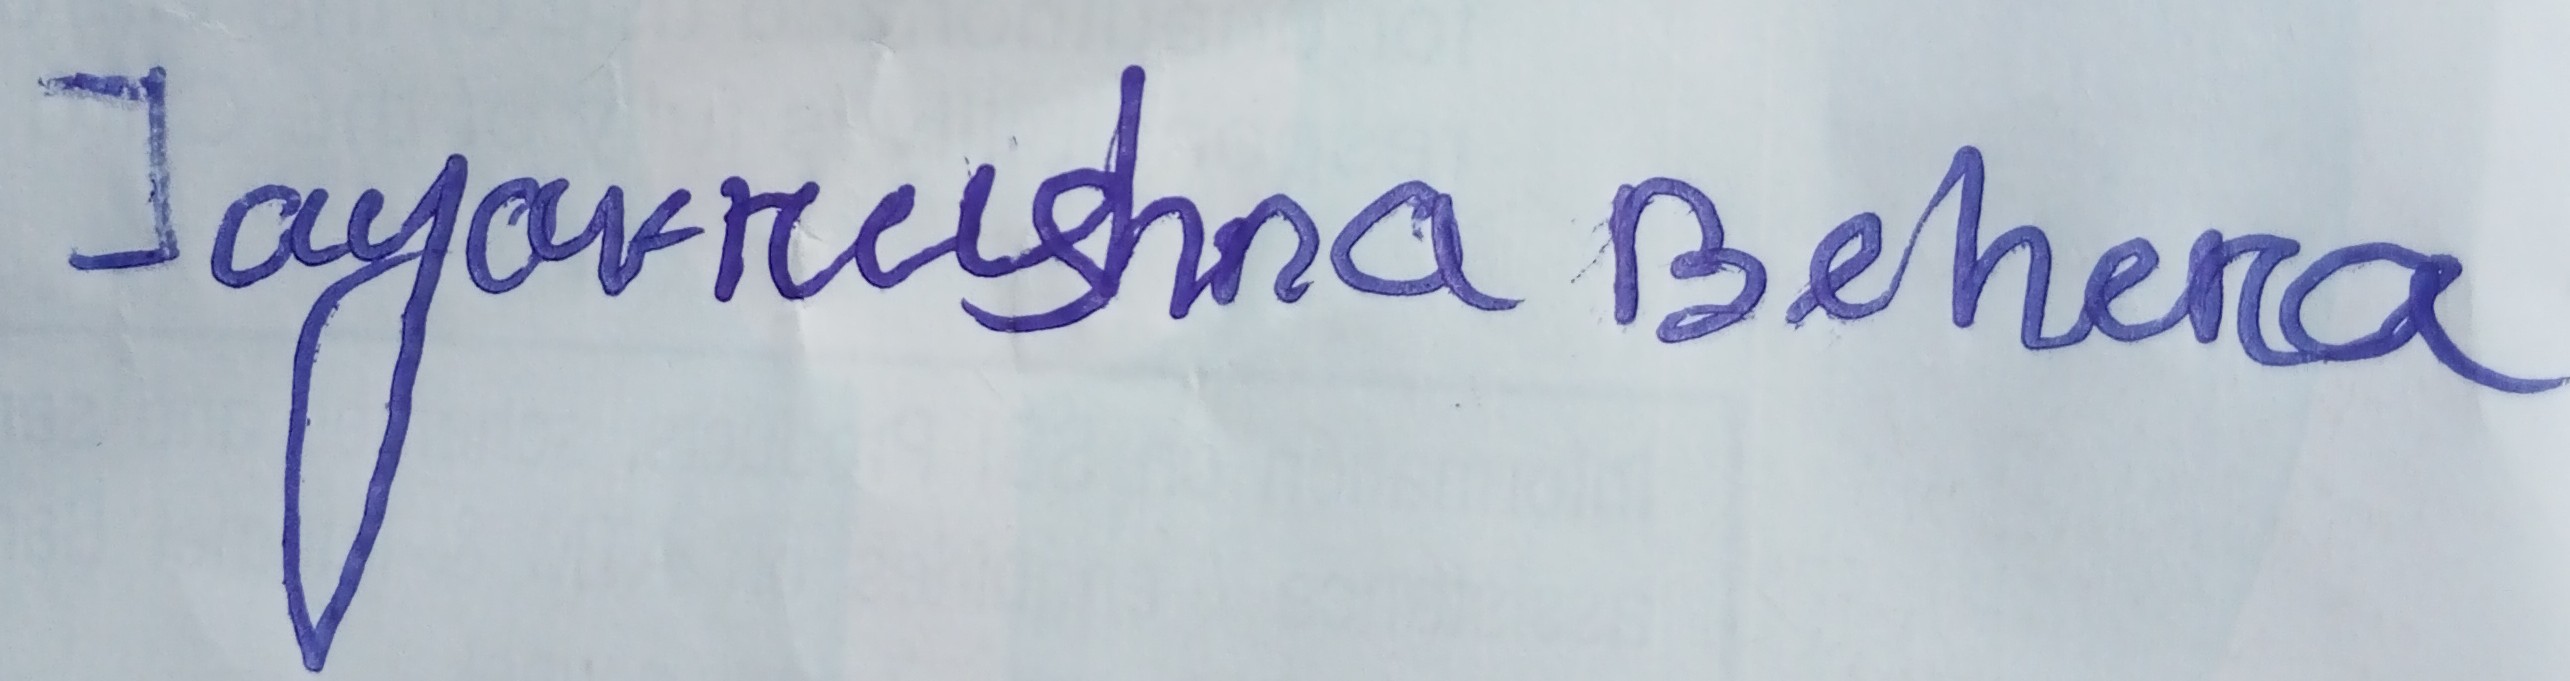 Jayakrushna Behera